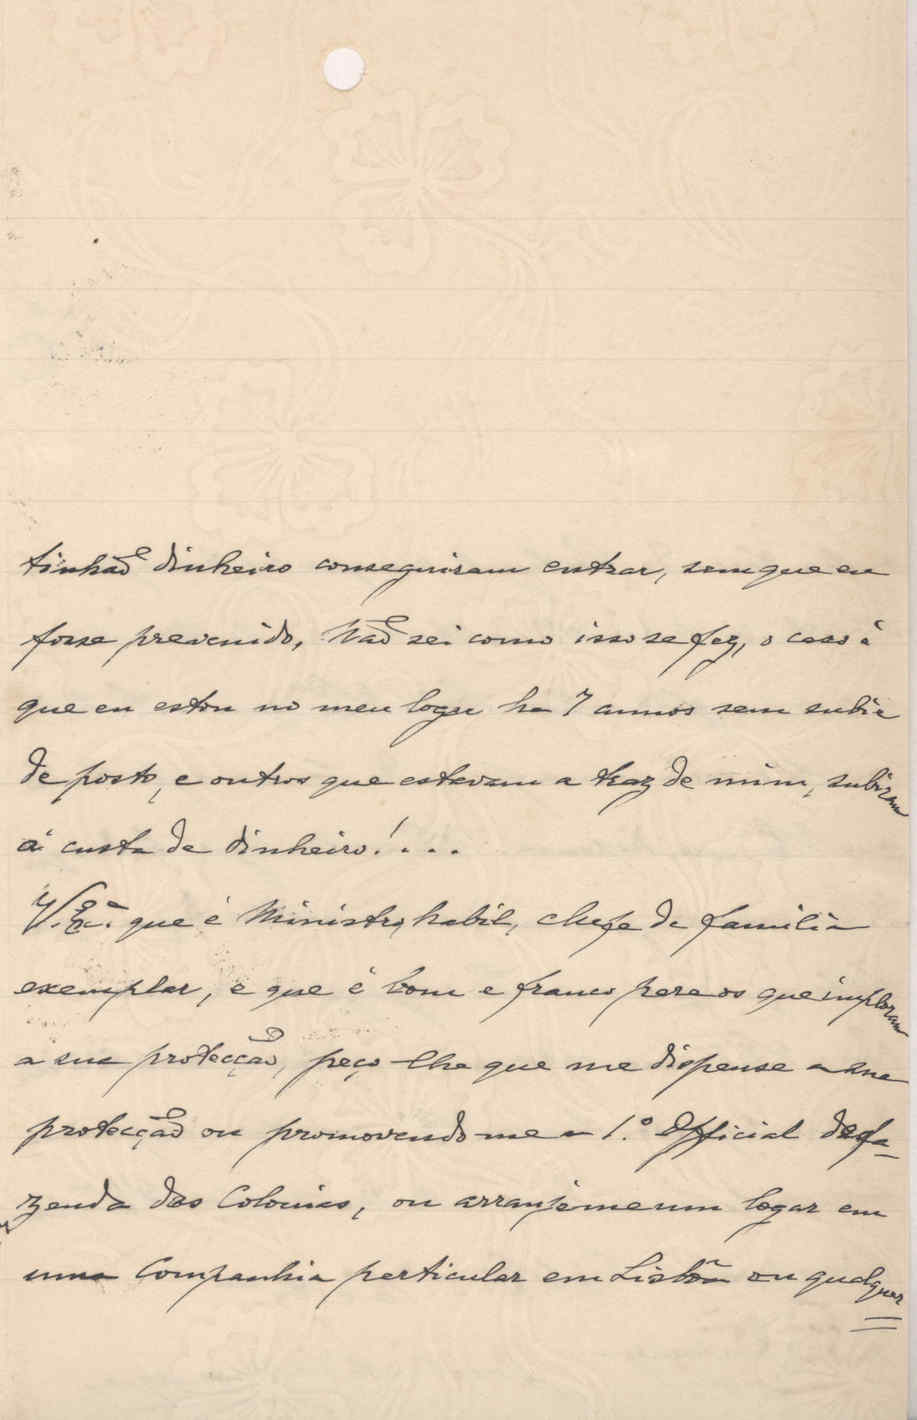 tinhaõ dinheiro conseguiram entrar, sem que eu
fosse prevenido, Naõ sei como isso se fez, o caso é
que eu estou no meu logar ha 7 annos sem subir
de posto, e outros que estavam a traz de mim, subiram
á custa de dinheiro!...
V. Exª. que é Ministro, habil, chefe de familia
exemplar, e que é bom e franco para os que imploram
a sua protecçaõ, peço-lhe que me dispense a sua
protecçaõ ou promovendo-me a 1.º Official de fa-
zenda das Colonias, ou arranje-me um logar em
uma Companhia particular em Lisbôa ou qualquer